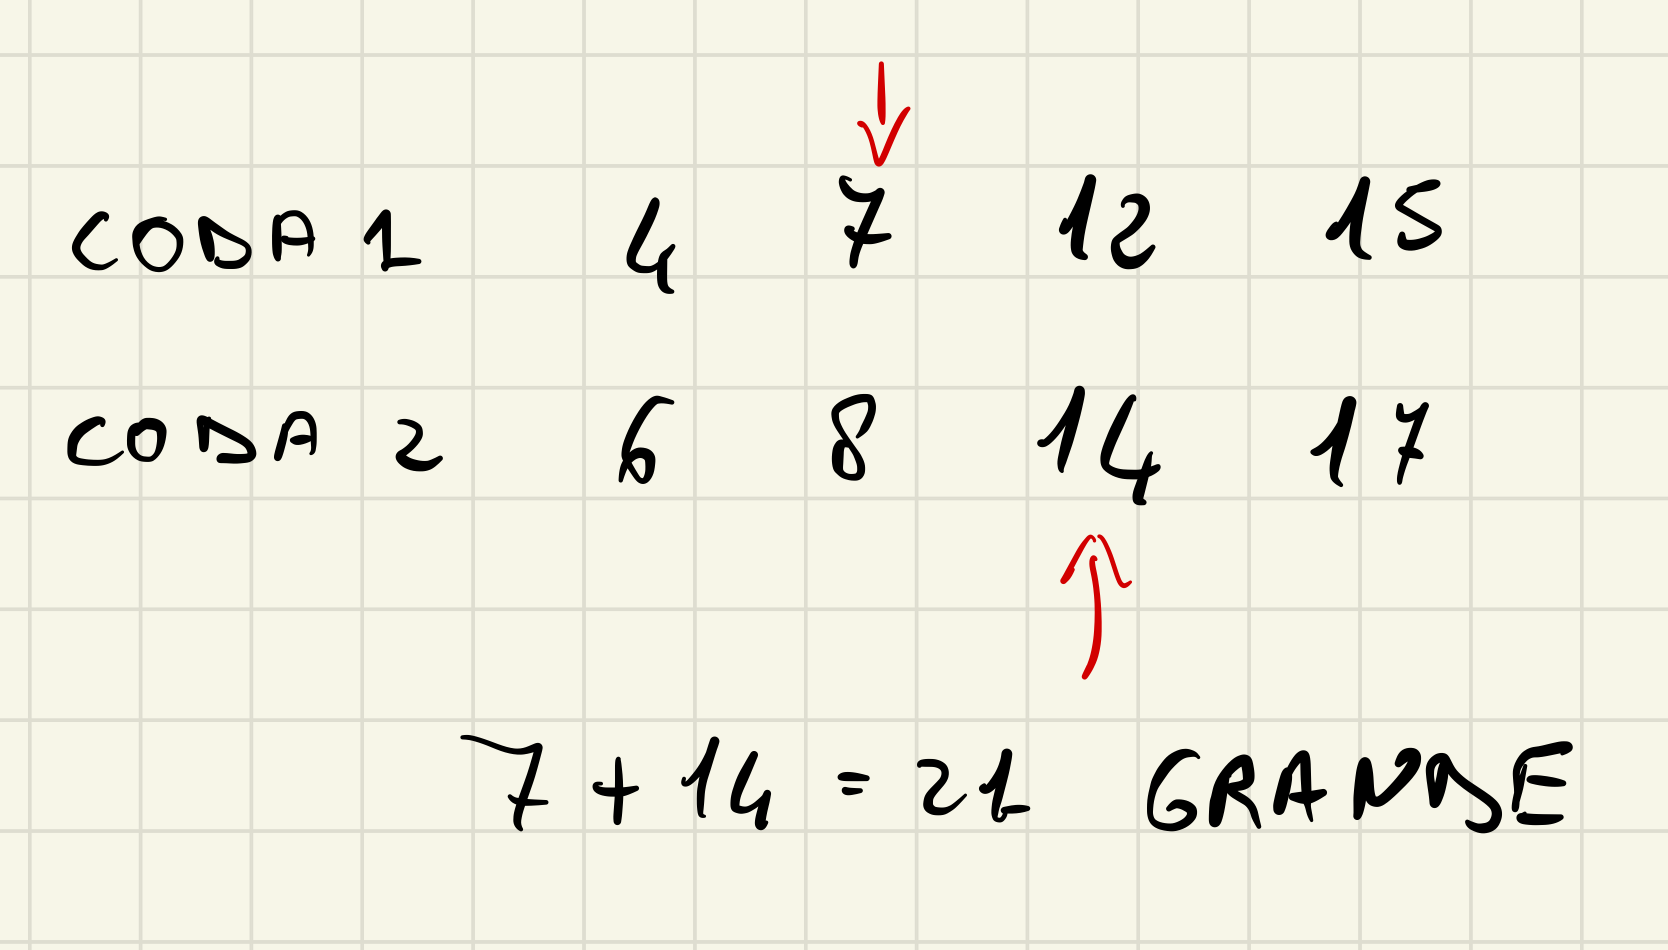 CODA 1 4 7 12 15
CODA 2 6 8 14 17
7 + 14 = 21 GRANDE